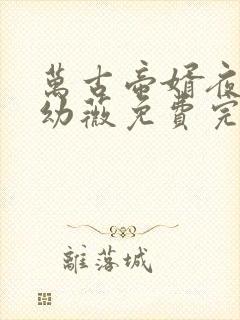 萬古帝婿夜
幼薇免費完
離落城